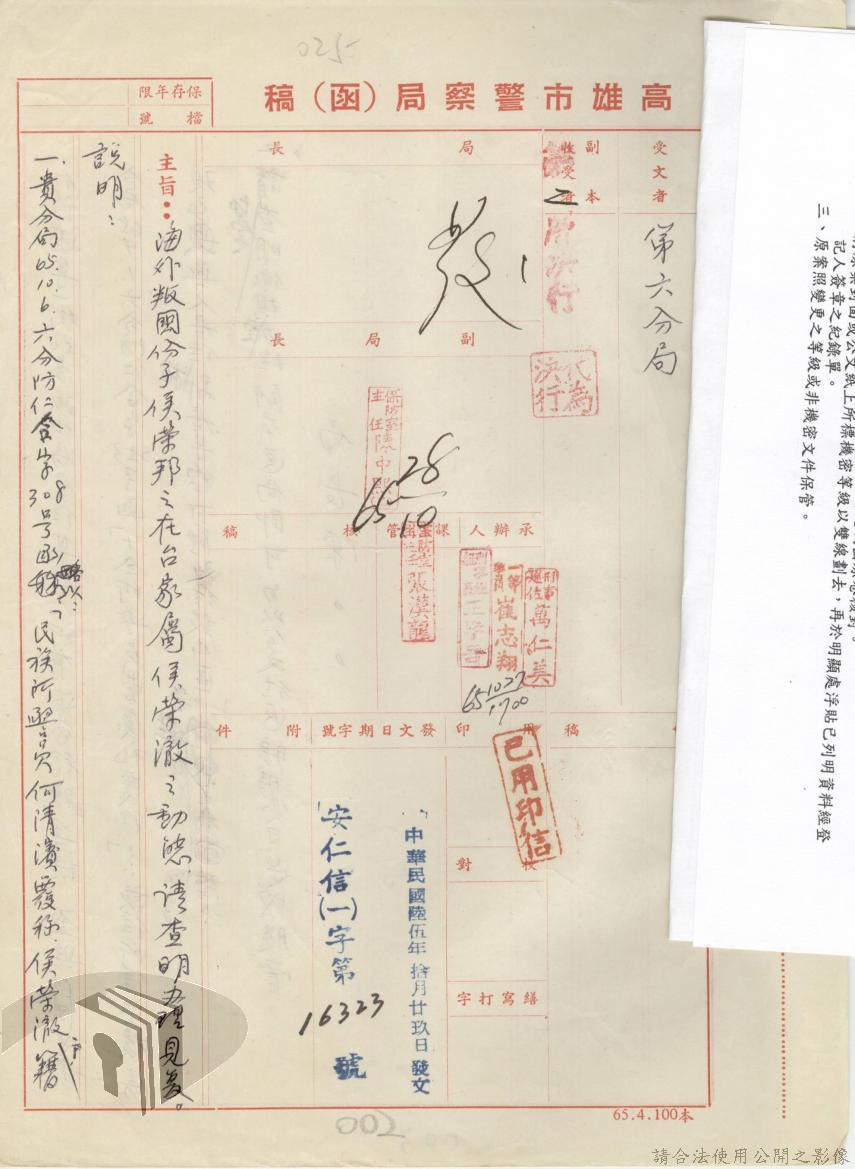 025
高雄市警察局（函）稿
保存年限
檔號
受文者
第六分局
副本收受者
局長
發
二層決行
代為決行
副局長
保防室主任陳中熙
65 28/10
承辦人
課室主管
核稿
刑事組巡佐萬仁美
一等警員崔志翔
65 1027/1700
稿
用印
發文日期字號
附件
已用印信
中華民國陸伍年拾月廿玖日發文
安仁信(一)字第16323號
校對
繕寫打字
主旨：海外叛國份子侯榮邦之在台家屬侯榮澈之動態，請查明辦理見复。
說明：
一、貴分局65.10.6.六分防仁字308号函略以：「民族所警員何清濱覆称，侯榮澈戶籍
65.4.100本
002
記人簽章之紀錄單。
三、原案照變更之等級或非機密文件保管。
請合法使用公開之影像